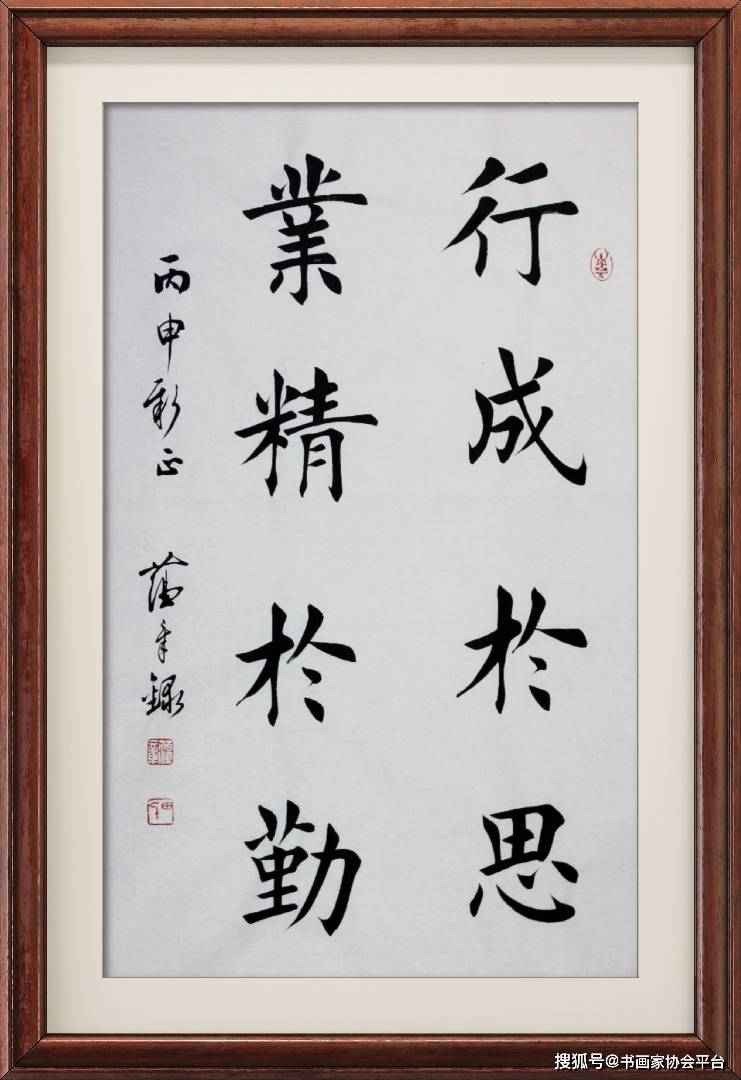 行成於思
業精於勤
丙申新正
录
搜狐号@书画家协会平台